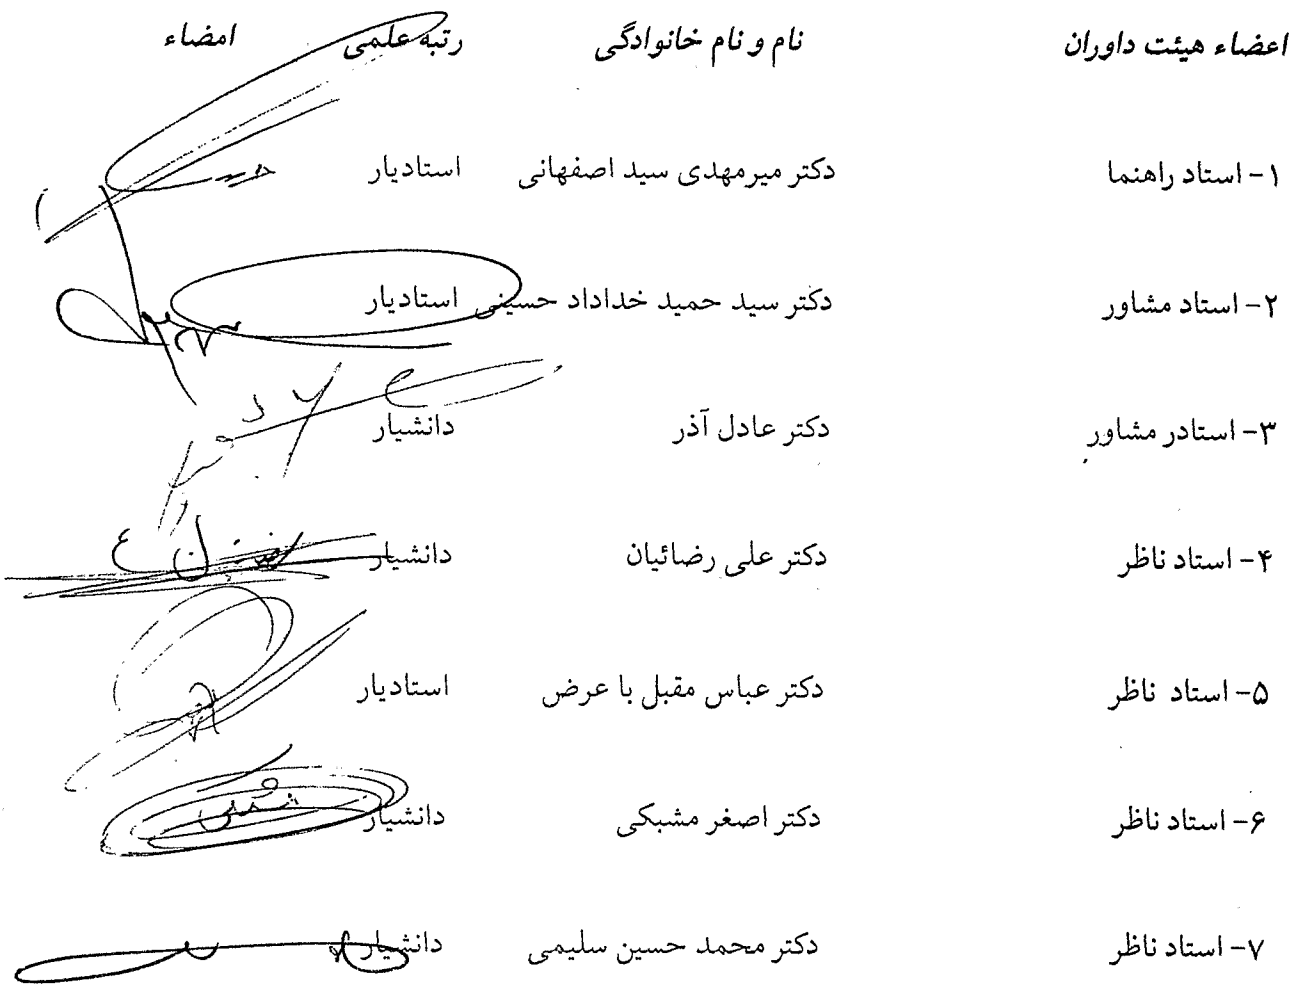 اعضاء هیئت داوران نام و نام خانوادگی رتبه علمی امضاء
۱- استاد راهنما دکتر میرمهدی سید اصفهانی استادیار
۲- استاد مشاور دکتر سید حمید خداداد حسینی استادیار
۳- استادر مشاور دکتر عادل آذر دانشیار
۴- استاد ناظر دکتر علی رضائیان دانشیار
۵- استاد ناظر دکتر عباس مقبل با عرض استادیار
۶- استاد ناظر دکتر اصغر مشبکی دانشیار
۷- استاد ناظر دکتر محمد حسین سلیمی دانشیار